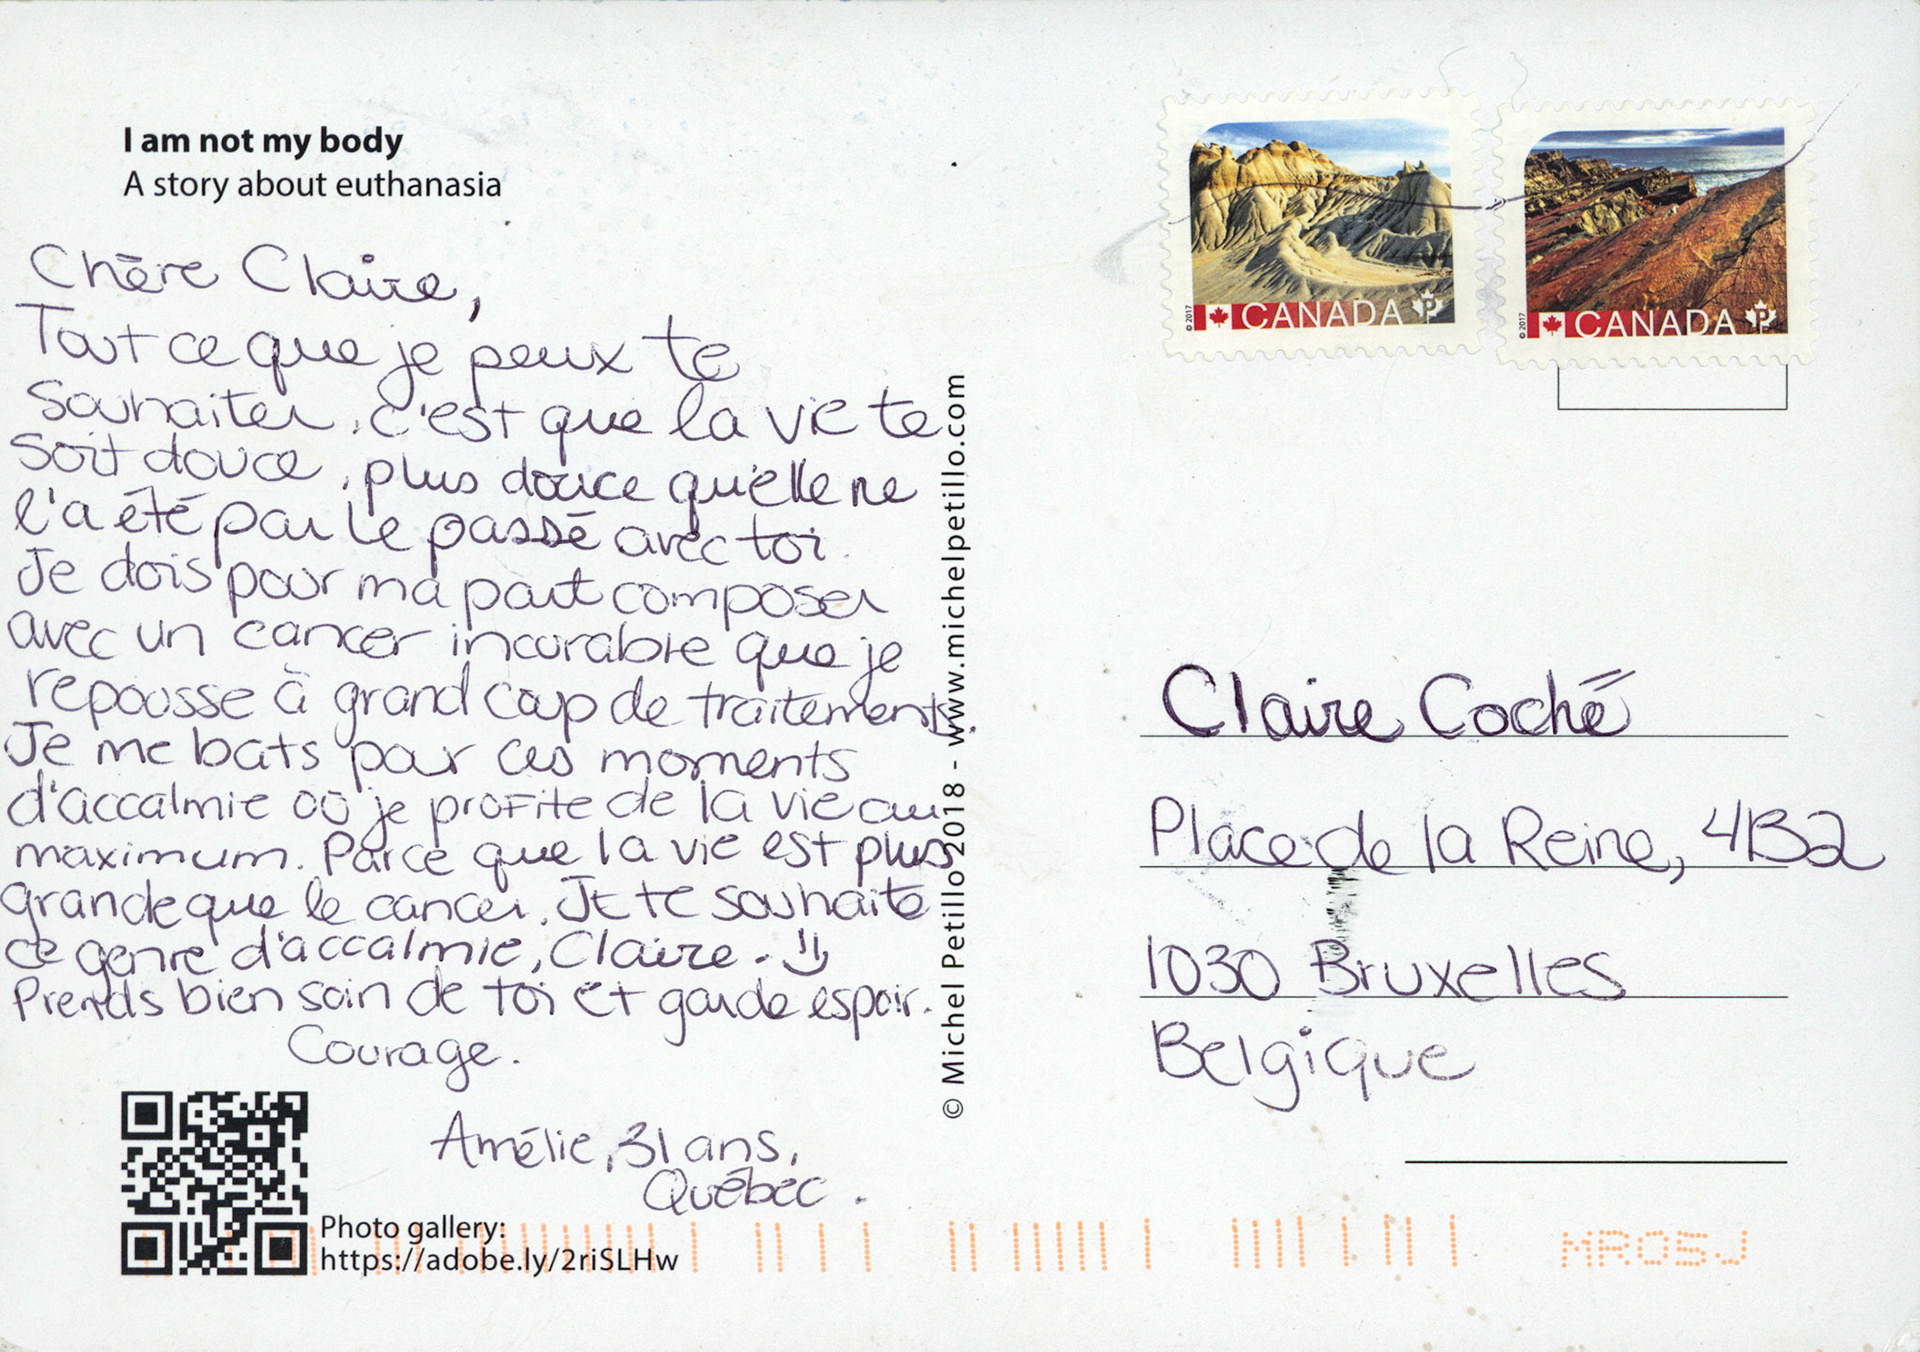 I am not my body
A story about euthanasia
Chère Claire,
Tout ce que je peux te
souhaiter, c'est que la vie te
soit douce, plus douce qu'elle ne
l'a été par le passé avec toi.
Je dois pour ma part composer
avec un cancer incurable que je
repousse à grand coup de traitements.
Je me bats pour ces moments
d'accalmie où je profite de la vie au
maximum. Parce que la vie est plus
grande que le cancer. Je te souhaite
ce genre d'accalmie, Claire.
Prends bien soin de toi et garde espoir.
Courage.
Amélie, 31 ans,
Québec.
Photo gallery:
https://adobe.ly/2riSLHw
© Michel Petillo 2018 - www.michelpetillo.com
© 2017
CANADA
P
© 2017
CANADA
P
Claire Coché
Place de la Reine, 4B2
1030 Bruxelles
Belgique
MR05J